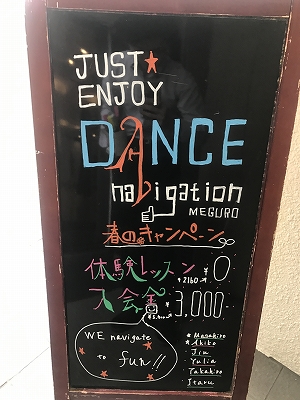 JUST★
ENJOY
DANCE
navigation
MEGURO
春のキャンペーン
体験レッスン ¥2160 ¥0
入会金 3,000-
WE navigate
to fun!!
★Masahiro
★Akiko
Jin
Yulia
Takahiro
Itaru